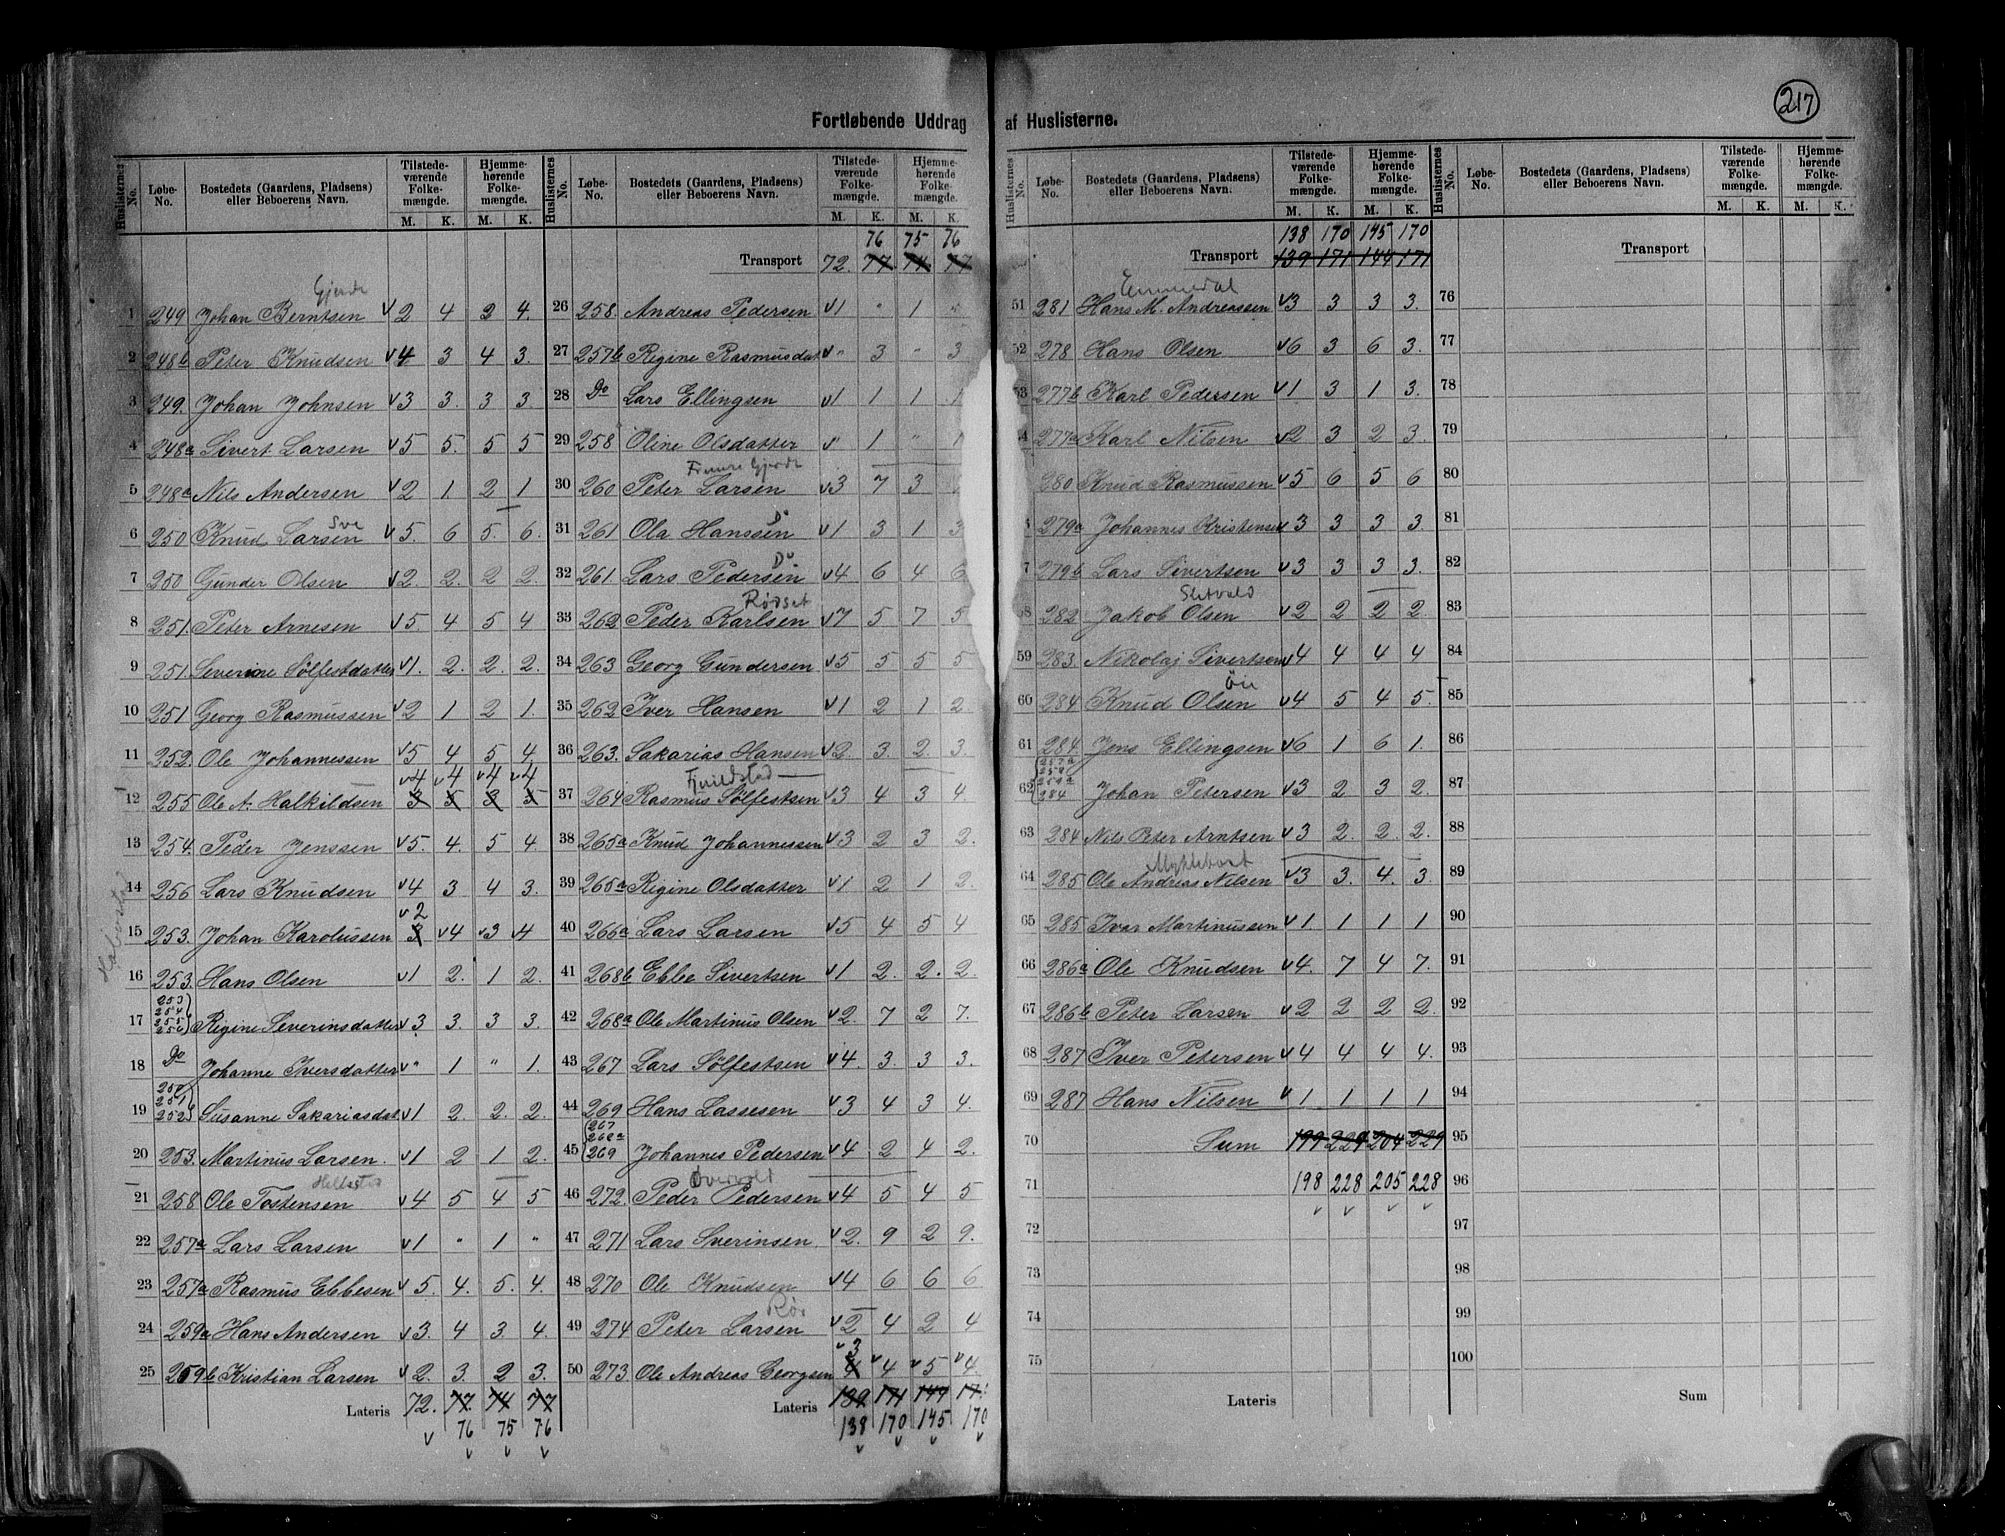 217
Fortløbende Uddrag af Huslisterne.
Huslisternes No. Løbe-No. Bostedets (Gaardens, Pladsens) eller Beboerens Navn. Tilstedeværende Folkemængde. M. K. Hjemmehørende Folkemængde. M. K.
Gjerde
1 249 Johan Berntsen v2 4 2 4.
2 248b Peter Knudsen v4 3 4 3.
3 249. Johan Johnsen v3 3. 3 3.
4 248a Sivert Larsen v5 5. 5 5
5 248a Nils Andersen v2 1 2 1
Sve
6 250 Knud Larsen v5. 6 5. 6.
7 250 Gunder Olsen v2. 2. 2 2.
8 251. Peter Arnesen v5. 4 5 4
9 251. Severine Sølfestdatter v1. 2. 2. 2.
10 251 Georg Rasmussen v2 1 2 1.
11 252. Ole Johannessen v5 4 5 4
v4 v4 v4 v4
12 255 Ole A. Halkildsen 3 5 3 5
13 254. Peder Jenssen v5. 4. 5 4.
14 256 Lars Knudsen v4 3 4 3.
v2
15 253. Johan Karolussen 3 v4 v3 v4
16 253. Hans Olsen v1 2. 1 2.
253 254 255 256
17 Regine Severinsdatter v3 3. 3 3.
18 Do Johanne Iversdatter v" 1 " 1.
250 251 252
19 Susanne Sakariasdat v1 2. 2. 2.
20 253. Martinus Larsen. v1 2 1 2.
21 258 Ole Tostensen v4 5 4 5
22 257a Lars Larsen v1 " 1 "
23 257a Rasmus Ebbesen v5. 4. 5. 4.
24 259a Hans Andersen v3. 4 3. 4.
25 259b Kristian Larsen v2. 3. 2 3.
Lateris 72. 77. 74 77
v 76 75 76
Huslisternes No. Løbe-No. Bostedets (Gaardens, Pladsens) eller Beboerens Navn. Tilstedeværende Folkemængde. M. K. Hjemmehørende Folkemængde. M. K.
76 75 76
Transport 72. 77 74 77
26 258. Andreas Pedersen v1 " 1 "
27 257b Regine Rasmusdat v" 3 " 3
28 Do Lars Ellingsen v1 1 1 1
29 258 Oline Olsdatter v" 1 " 1
30 260 Peter Larsen v3 7 3
Do
31 261 Ola Hanssen v1 3 1 3
Do
32 261 Lars Pedersen v4 6 4 6
Rødset
33 262 Peder Karlsen v7 5 7 5
34 263 Georg Gundersen v5 5 5 5
35 262 Iver Hansen v1 2 1 2
36 263. Sakarias Hansen v2. 3. 2. 3.
Fjeldstad
37 264 Rasmus Sølfestsen v3 4 3 4
38 265a Knud Johannessen v3 2 3 2.
39 265a Regine Olsdatter v1 2 1 2.
40 266a Lars Larsen v5 4 5 4
41 268b Ebbe Sivertsen v1 2. 2. 2
42 268a Ole Martinus Olsen v2 7 2 7.
43 267 Lars Sølfestsen v4. 3. 3 3.
44 269 Hans Lassesen v3 4 3 4.
267 268a 269
45 Johannes Pedersen v4 2 4 2.
Overvold
46 272. Peder Pedersen v4 5 4 5
47 271 Lars Sverinsen v2. 9 2 9.
48 270 Ole Knudsen v4 6 6 6
Rø
49 274 Peter Larsen v2 4 2 4
v3
50 273. Ole Andreas Georgsen 4 v4 v5 v4
Lateris 139 171 144 17
138 170 145 170
Huslisternes No. Løbe-No. Bostedets (Gaardens, Pladsens) eller Beboerens Navn. Tilstedeværende Folkemængde. M. K. Hjemmehørende Folkemængde. M. K.
138 170 145 170
Transport 139 171 144 171
51 281 Hans M. Andreassen v3 3 3 3.
52 278 Hans Olsen v6 3 6 3.
53 277b Karl Pedersen v1 3 1 3.
277a Karl Nilsen v2 3 2 3.
280 Knud Rasmussen v5 6 5 6
279a Johannes Kristensen v3 3 3 3
279b Lars Sivertsen v3 3 3 3.
58 282 Jakob Olsen v2 2 2 2.
59 283. Nikolaj Sivertsen v4 4 4 4
Öie
60 284 Knud Olsen v4 5 4 5.
61 284. Jens Ellingsen v6 1 6 1.
62 284 Johan Petersen v3 2 3 2
63 284 Nils Peter Arntsen v3 2. 2. 2.
Myklebost
64 285 Ole Andreas Nilsen v3 3. 4. 3
65 285 Ivar Martinussen v1 1 1 1
66 286a Ole Knudsen v4. 7 4 7.
67 286b Peter Larsen v2 2 2 2
68 287 Iver Petersen v4 4 4 4.
69 287 Hans Nilsen v1 1 1 1
70 Sum 199 229 204 229
71 198 228 205 228
72
73
74
75
Lateris
Huslisternes No. Løbe-No. Bostedets (Gaardens, Pladsens) eller Beboerens Navn. Tilstedeværende Folkemængde. M. K. Hjemmehørende Folkemængde. M. K.
Transport
76
77
78
79
80
81
82
83
84
85
86
87
88
89
90
91
92
93
94
95
96
97
98
99
100
Sum